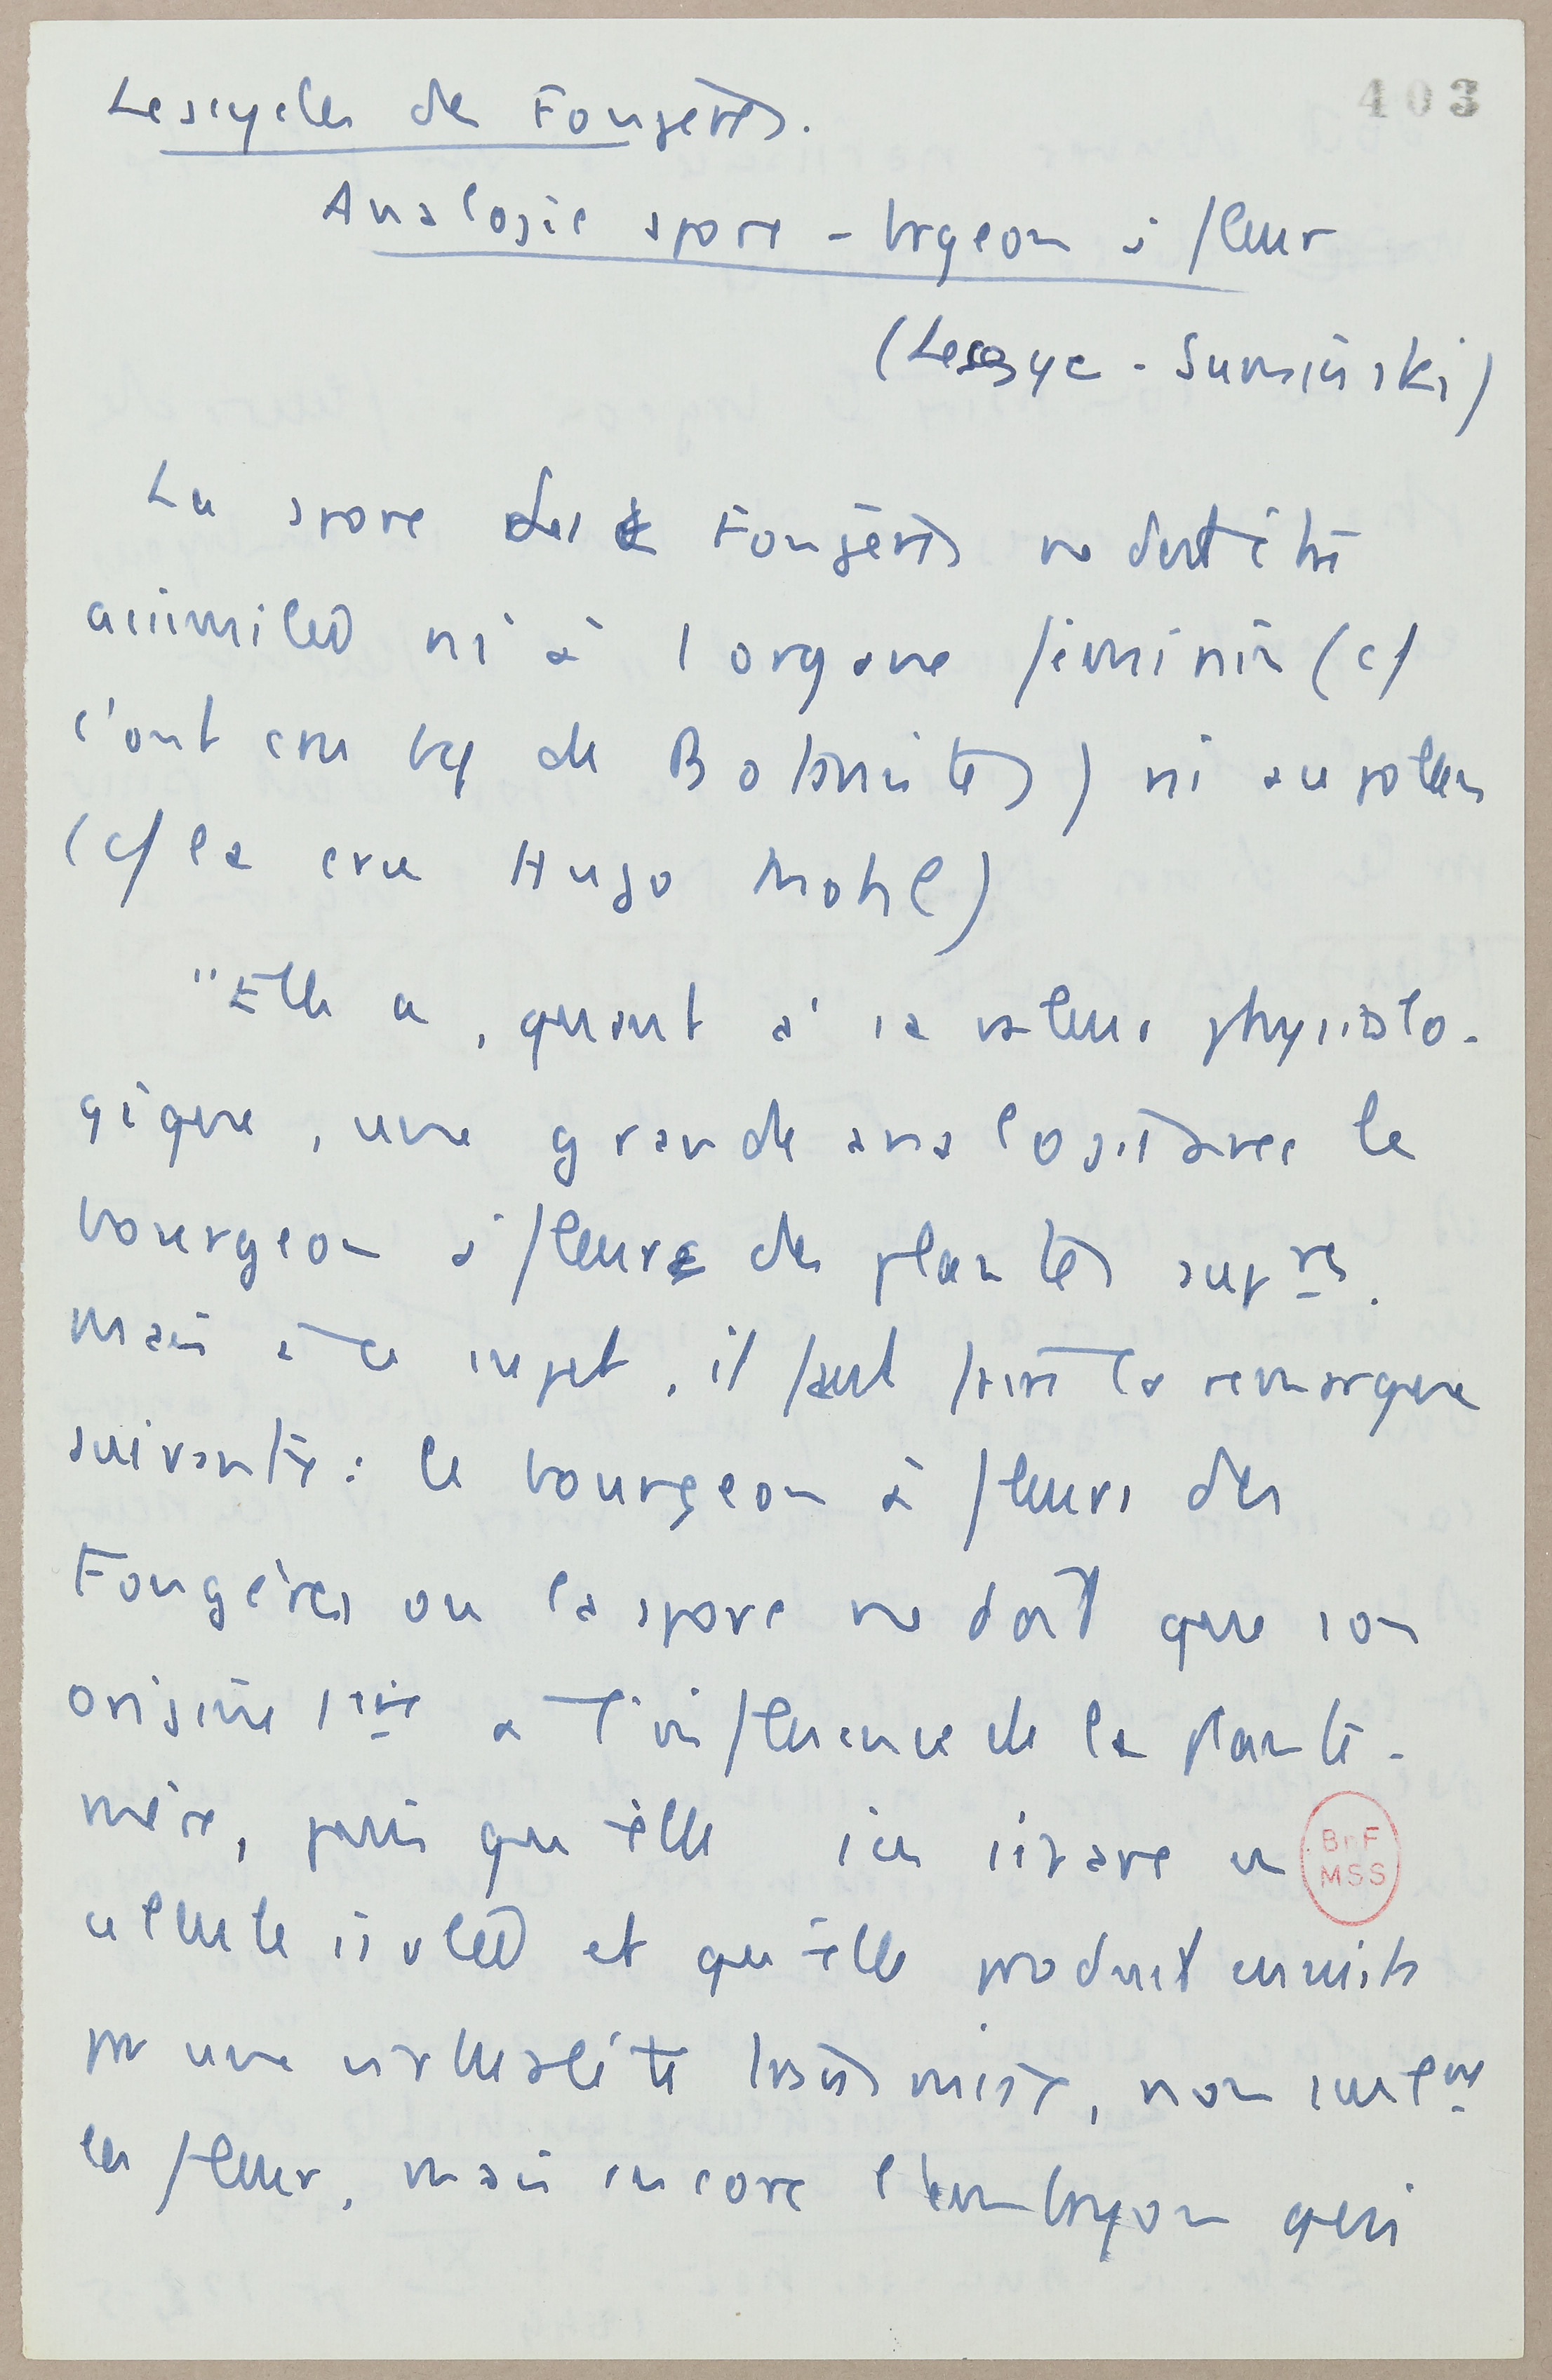 403
Les cycles des Fougères.
Analogie spore - brgeon à fleur
(Leszyc - Suminski)
La spore des Fougères ne doit être
assimilée ni à l'organe féminin (cf
l'ont cru bcp de Botanistes) ni au pollen
(cf la cru Hugo Mohl)
"Elle a, quant à sa valeur physiolo-
gique, une grande analogie avec le
bourgeon à fleurs des plantes supres.
Mais à ce sujet, il faut faire la remarque
suivante : le bourgeon à fleurs des
Fougères ou la spore ne doit que son
origine 1ère à l'influence de la plante-
mère, puis qu'elle s'en sépare en
cellule isolée et qu'elle produit ensuite
par une végétalité, non seulemt
la fleur, mais encore l'embryon qui
BnF
MSS